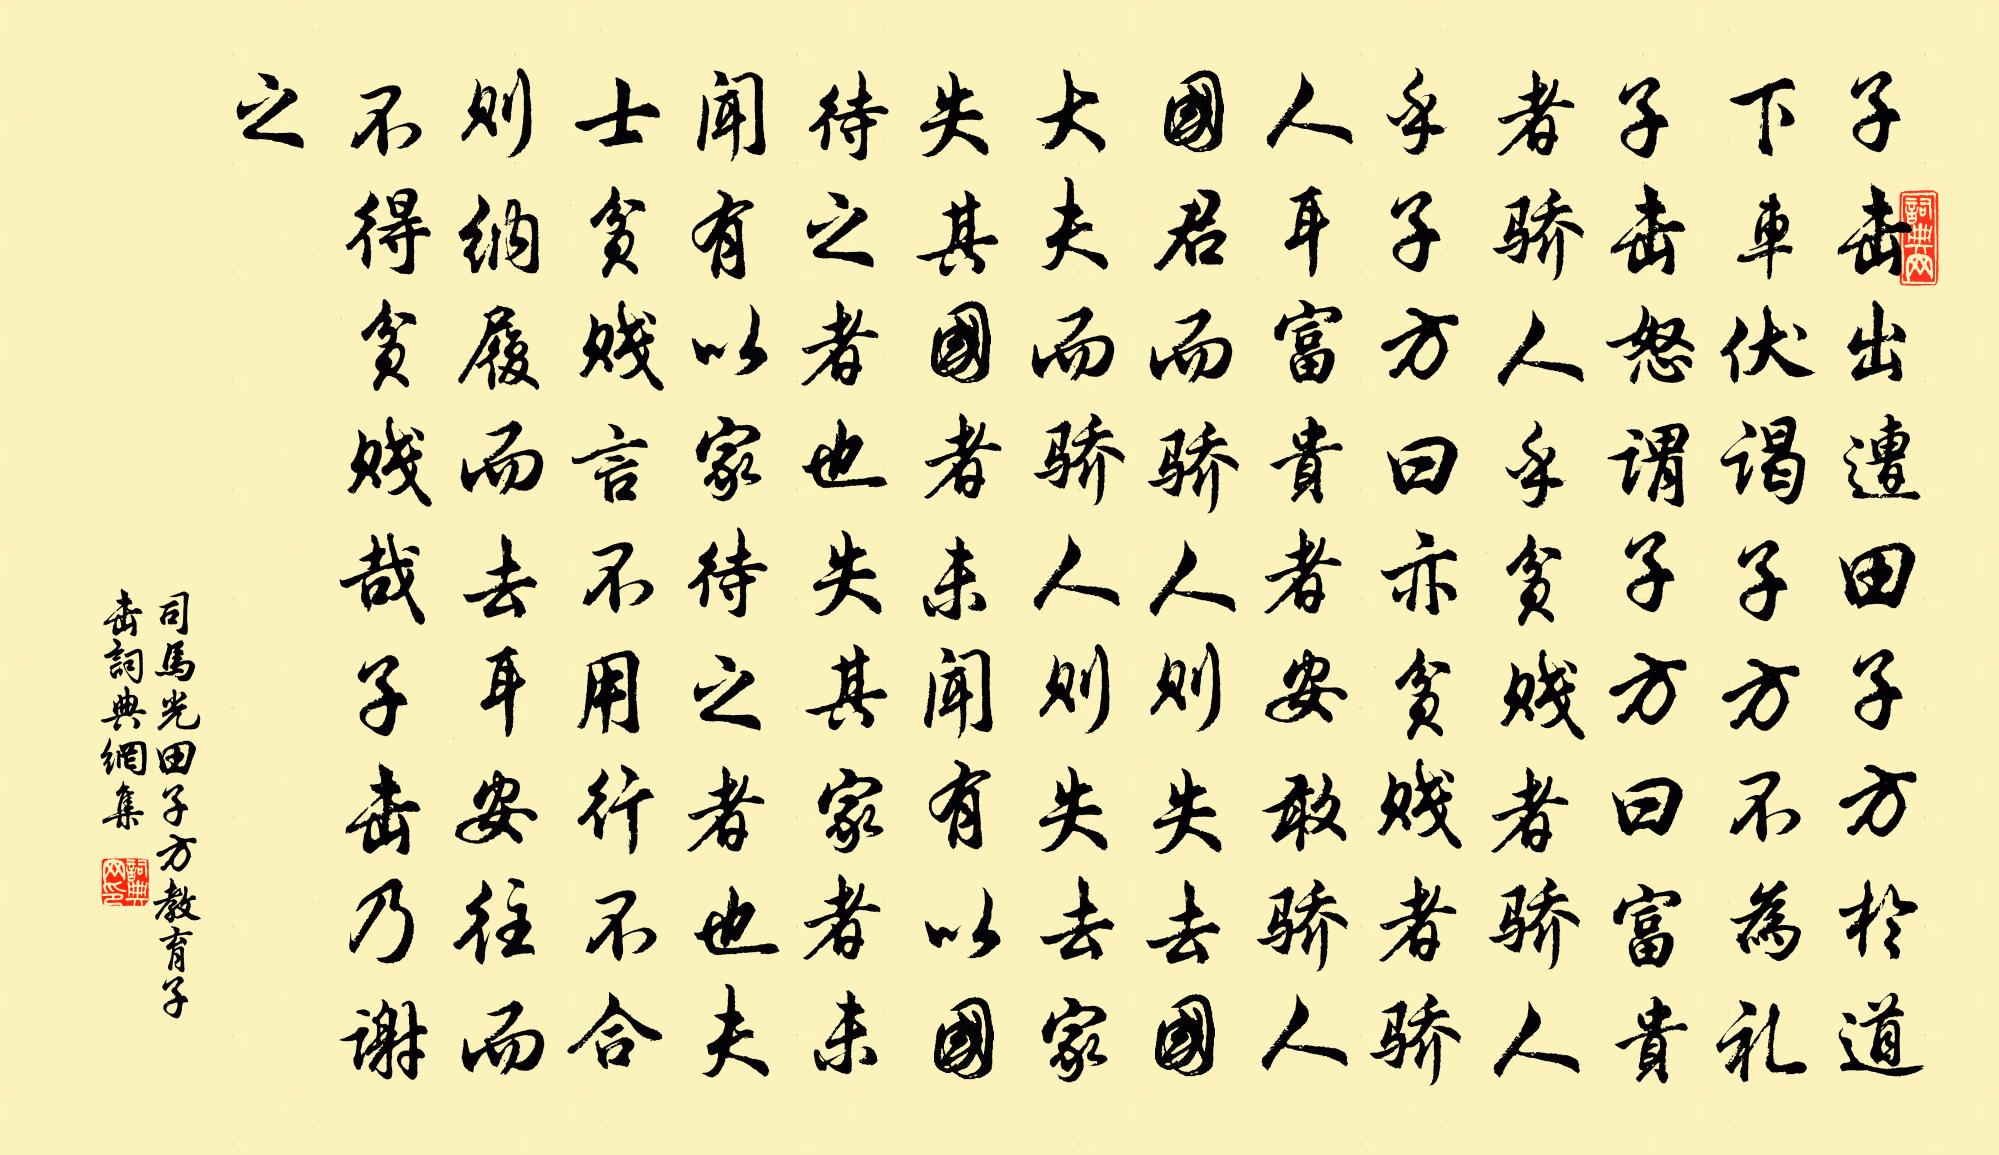 子击出遭田子方於道
下車伏谒子方不為礼
子击怒谓子方曰富貴
者骄人乎贫贱者骄人
乎子方曰亦贫贱者骄
人耳富貴者安敢骄人
國君而骄人则失去國
大夫而骄人则失去家
失其國者未闻有以國
待之者也失其家者未
闻有以家待之者也夫
士贫贱言不用行不合
则纳履而去耳安往而
不得贫贱哉子击乃谢
之
司馬光田子方教育子
击詞典網集
詞典网
詞典网印